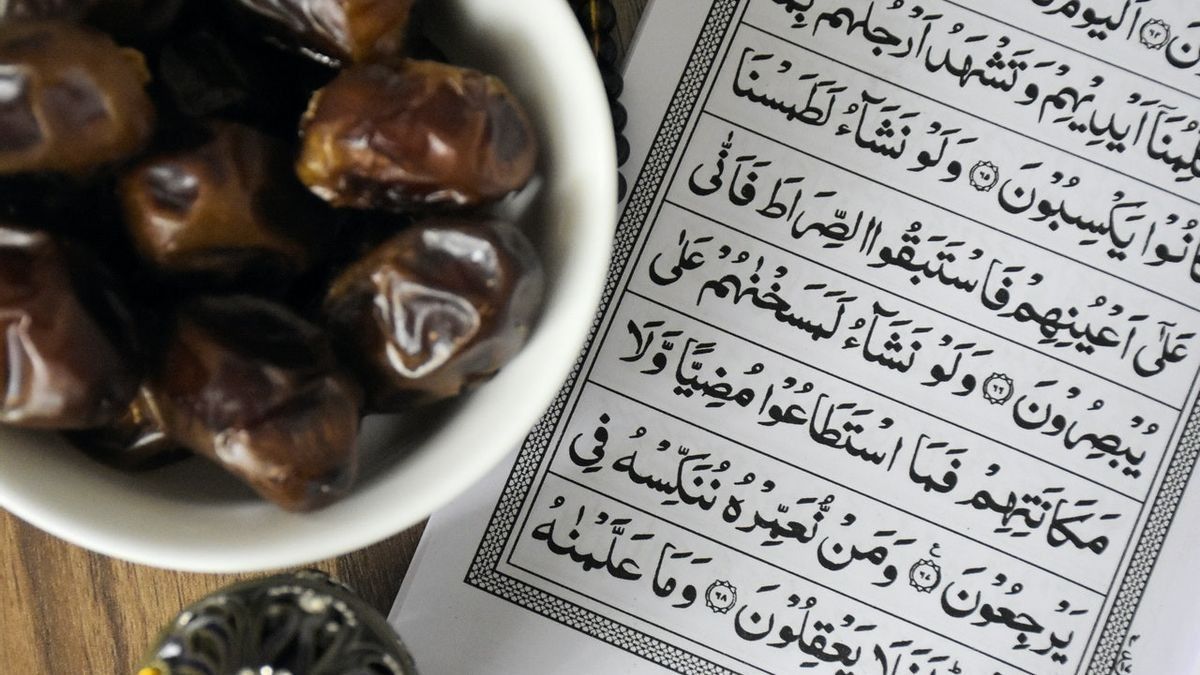 ۝٦٣ اَلْيَوْمَ
اَيْدِيْهِمْ وَتَشْهَدُ اَرْجُلُهُمْ بِمَا
كَانُوْا يَكْسِبُوْنَ ۝٦٥ وَلَوْ نَشَآءُ لَطَمَسْنَا
عَلٰٓى اَعْيُنِهِمْ فَاسْتَبَقُوا الصِّرَاطَ فَاَنّٰى
يُبْصِرُوْنَ ۝٦٦ وَلَوْ نَشَآءُ لَمَسَخْنٰهُمْ عَلٰى
مَكَانَتِهِمْ فَمَا اسْتَطَاعُوْا مُضِيًّا وَّلَا
يَرْجِعُوْنَ ۝٦٧ وَمَنْ نُّعَمِّرْهُ نُنَكِّسْهُ فِى
يَعْقِلُوْنَ ۝٦٨ وَمَا عَلَّمْنٰهُ